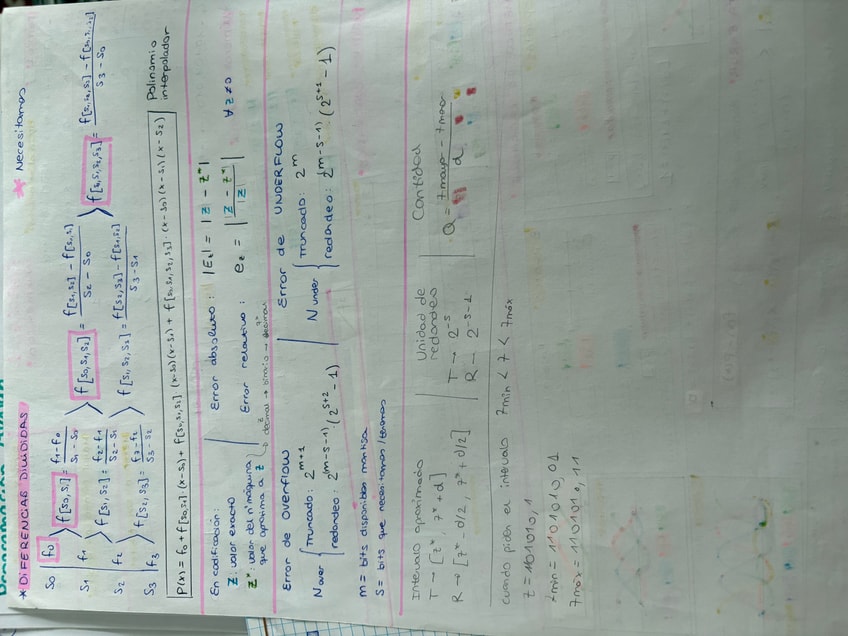 * DIFERENCIAS DIVIDIDAS
* Necesitamos
S0 f0 > f[S0,S1] = (f1-f0)/(S1-S0) > f[S0,S1,S2] = (f[S1,S2] - f[S0,S1])/(S2-S0) > f[S0,S1,S2,S3] = (f[S1,S2,S3] - f[S0,S1,S2])/(S3-S0)
S1 f1 > f[S1,S2] = (f2-f1)/(S2-S1) > f[S1,S2,S3] = (f[S2,S3] - f[S1,S2])/(S3-S1)
S2 f2 > f[S2,S3] = (f3-f2)/(S3-S2)
S3 f3
P(x) = f0 + f[S0,S1]·(x-S0) + f[S0,S1,S2]·(x-S0)(x-S1) + f[S0,S1,S2,S3]·(x-S0)(x-S1)(x-S2)
Polinomio
interpolador
En codificación:
z: valor exacto
z*: valor del nº máquina
que aproxima a z
z decimal → binario → decimal z*
Error absoluto: |Ez| = |z - z*|
Error relativo: ez = |(z - z*)/|z|| ∀z≠0
Error de Overflow
Nover { truncado: 2^(m+1)
redondeo: 2^(m-s-1) (2^(s+2) - 1)
Error de UNDERFLOW
Nunder { truncado: 2^m
redondeo: 2^(m-s-1) (2^(s+1) - 1)
m = bits disponibles mantisa
S = bits que necesitamos/tenemos
Intervalo aproximado
T → [z*, z*+d]
R → [z*-d/2, z*+d/2]
Unidad de
redondeo
T → 2^-s
R → 2^(-s-1)
Cantidad
Q = (zmayor - zmenor)/d
cuando piden el intervalo zmin < z < zmáx
z = 101010,1
zmin = 1101010,01
zmax = 1101010,11